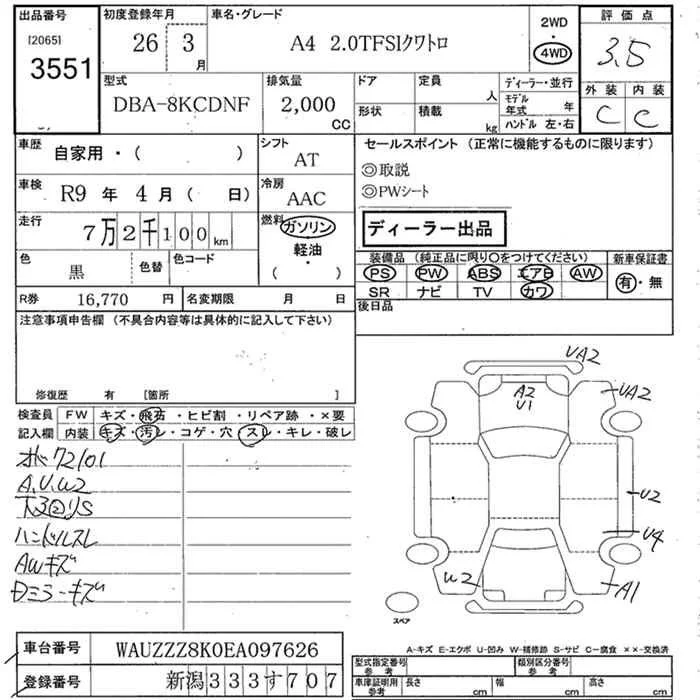 出品番号 初度登録年月 車名・グレード 2WD 評価点
[2065] 26 3 月 A4 2.0TFSIクワトロ ・ 3.5
3551 4WD
型式 排気量 ドア 定員 人 ディーラー・並行 外装 内装
DBA-8KCDNF 2,000 CC 形状 積載 kg モデル年式 年 C C
ハンドル 左・右
車歴 自家用・( ) シフト AT セールスポイント (正常に機能するものに限ります)
◎取説
車検 R9 年 4 月 ( 日) 冷房 AAC ◎PWシート
走行 7万2千100 km 燃料 ガソリン・軽油・( ) ディーラー出品
色 黒 色替 色コード 装備品 (純正品に限り○をつけてください) 新車保証書
PS PW ABS エアB AW 有・無
R券 16,770 円 名変期限 月 日 SR ナビ TV カワ
注意事項申告欄 (不具合内容等は具体的に記入して下さい) 後日品
修復歴 有 [箇所 ]
検査員 FW キズ・飛石・ヒビ割・リペア跡・×要
記入欄 内装 キズ・汚レ・コゲ・穴・スレ・キレ・破レ
72101
A,U,W2
ハンドルスレ
AWキズ
Dミラーキズ
UA2
A2 UA2
U1
U2
U4
W2 A1
スペア
A-キズ E-エクボ U-凹み W-補修跡 S-サビ C-腐食 ××-交換済
車台番号 WAUZZZ8K0EA097626
型式指定番号 参考 類別区分番号 参考
登録番号 新潟333す707
車庫証明用 参考 長さ cm 幅 cm 高さ cm